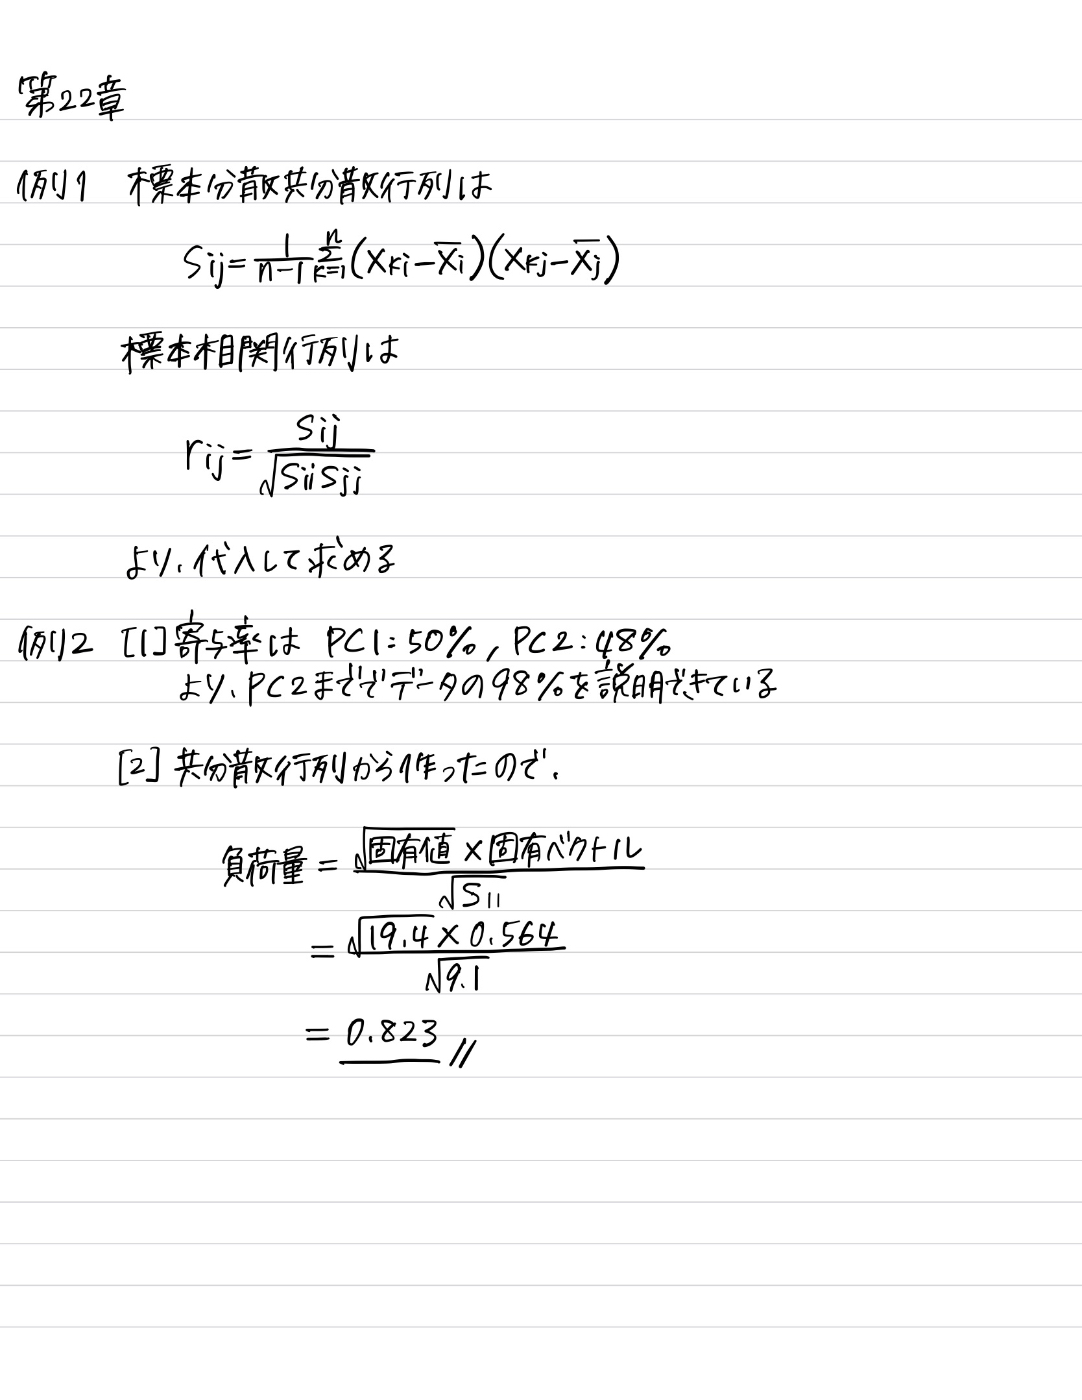 第22章
例1 標本分散共分散行列は
Sij = 1/(n-1) Σ[k=1, n] (xki - x̄i)(xkj - x̄j)
標本相関行列は
rij = Sij/√(Sii Sjj)
より、代入して求める
例2 [1] 寄与率は PC1:50%, PC2:48%
より、PC2まででデータの98%を説明できている
[2] 共分散行列から作ったので、
負荷量 = √固有値 × 固有ベクトル / √S11
= √19.4 × 0.564 / √9.1
= 0.823 //